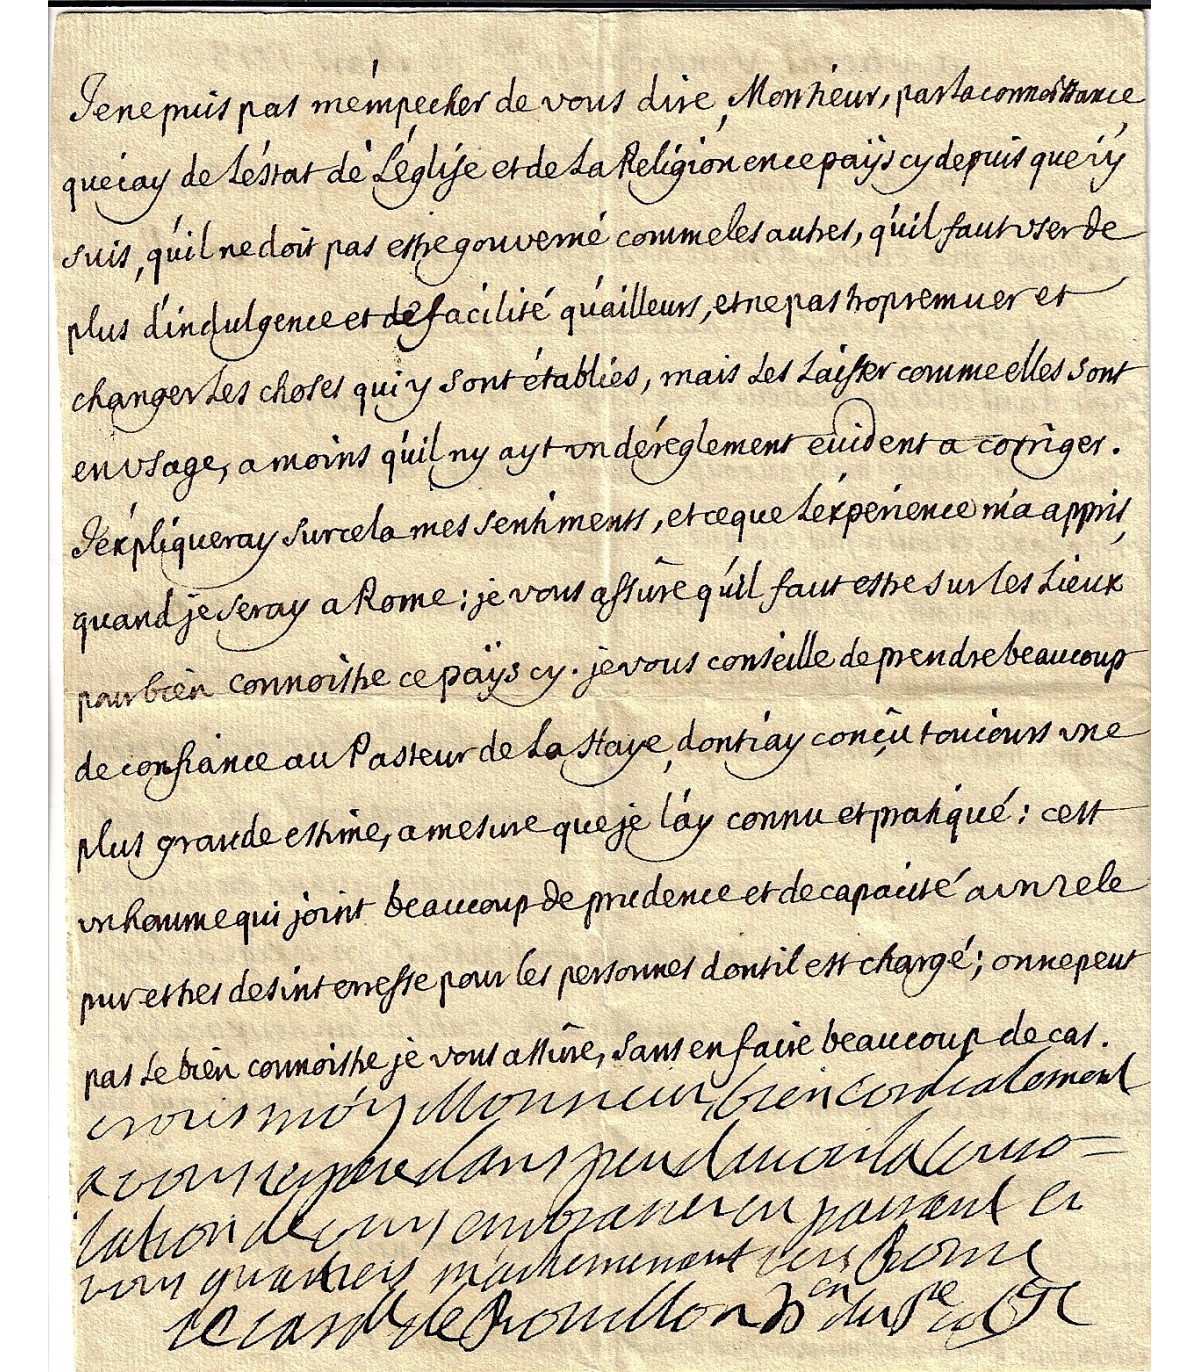 Je ne puis pas m'empecher de vous dire, Monsieur, par la connoissance
que i'ay de L'éstat de L'églife et de La Religion en ce païs cy depuis que i'y
suis, qu'il ne doit pas estre gouverné comme les autres, qu'il faut vser de
plus d'indulgence et de facilité qu'ailleurs, et ne pas trop remuer et
changer Les choses qui y sont établies, mais Les Laisser comme elles sont
en vsage, a moins qu'il ny ayt vn déreglement euident a corriger.
J'expliqueray sur cela mes sentiments, et ce que L'experience m'a appris,
quand je seray a Rome: je vous assûre qu'il faut estre sur les Lieux
pour bien connoistre ce païs cy. je vous conseille de prendre beaucoup
de confiance au Pasteur de La Haye, dont i'ay conçû toucours vne
plus grande estime, a mesure que je l'ay connu et pratiqué: cest
vn homme qui joint beaucoup de prudence et de capacité a vn zele
pur et tres desinterresse pour les personnes dont il est chargé; on ne peut
pas Le bien connoistre je vous assûre, sans en faire beaucoup de cas.
moy Monsieur, bien cordialement
a vous dans peu d'auoir la conso=
lation de vous embrasser en passant
vous m'acheminant vers Rome
le card de Bouillon du